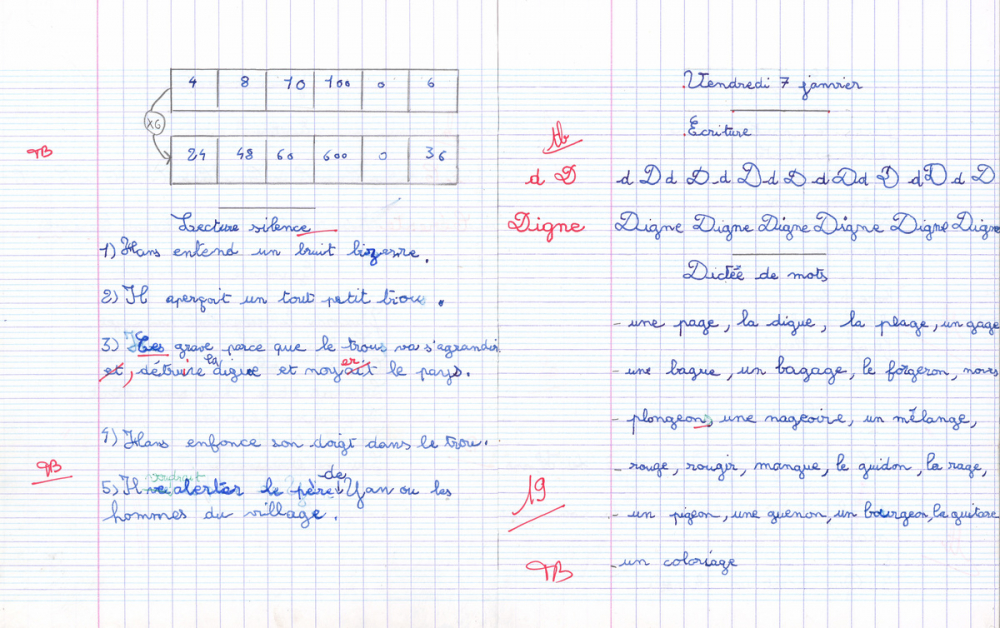 4 8 10 100 0 6
x6
24 48 60 600 0 36
TB
Lecture silence
1) Hans entend un bruit bizarre.
2) Il aperçoit un tout petit trou.
3) Les grave parce que le trous va s'agrandir
et, détruire la digue et noyait er le pays.
4) Hans enfonce son doigt dans le trou.
TB
5) Il voudrait alerter le père de Yan ou les
hommes du village.
Vendredi 7 janvier
Ecriture
tb
d D d D d D d D d D d D d D d D d D
Digne Digne Digne Digne Digne Digne Digne
Dictée de mots
- une page, la digue, la plage, un gage
- une bague, un bagage, le forgeron, nous
- plongeons, une nageoire, un mélange,
- rouge, rougir, mangue, le guidon, la rage,
19
- un pigeon, une guenon, un bourgeon, la guitare
TB
- un coloriage